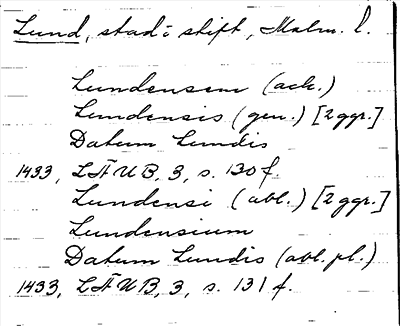 Lund, stad i stift, Malm. l.
Lundensem (ack.)
Lundensis (gen.) [2 ggr.]
Datum Lundis
1433, LÄUB, 3, s. 130 f.
Lundensi (abl.) [2 ggr.]
Lundensium
Datum Lundis (abl. pl.)
1433, LÄUB, 3, s. 131 f.